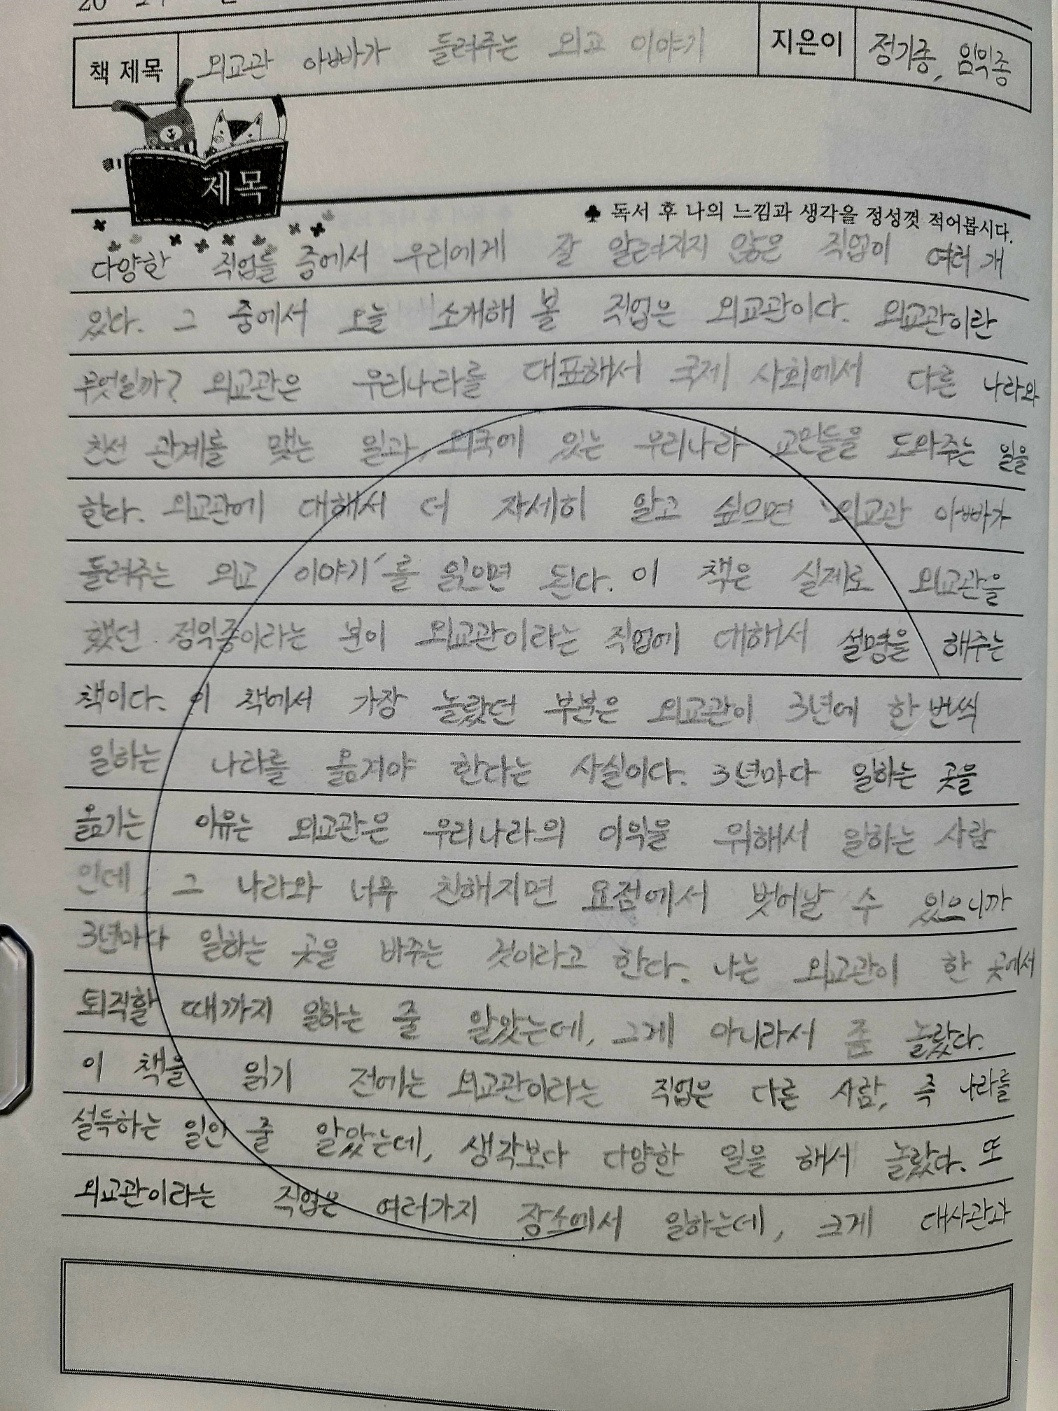 책 제목 외교관 아빠가 들려주는 외교 이야기 지은이 정기종, 임익종
제목
♣ 독서 후 나의 느낌과 생각을 정성껏 적어봅시다.
다양한 직업들 중에서 우리에게 잘 알려지지 않은 직업이 여러 개
있다. 그 중에서 오늘 소개해 볼 직업은 외교관이다. 외교관이란
무엇일까? 외교관은 우리나라를 대표해서 국제 사회에서 다른 나라와
친선 관계를 맺는 일과, 외국에 있는 우리나라 교민들을 도와주는 일을
한다. 외교관에 대해서 더 자세히 알고 싶으면 '외교관 아빠가
들려주는 외교 이야기'를 읽으면 된다. 이 책은 실제로 외교관을
했던 정익종이라는 분이 외교관이라는 직업에 대해서 설명을 해주는
책이다. 이 책에서 가장 놀랐던 부분은 외교관이 3년에 한 번씩
일하는 나라를 옮겨야 한다는 사실이다. 3년마다 일하는 곳을
옮기는 이유는 외교관은 우리나라의 이익을 위해서 일하는 사람
인데, 그 나라와 너무 친해지면 요점에서 벗어날 수 있으니까
3년마다 일하는 곳을 바꾸는 것이라고 한다. 나는 외교관이 한 곳에서
퇴직할 때까지 일하는 줄 알았는데, 그게 아니라서 좀 놀랐다.
이 책을 읽기 전에는 외교관이라는 직업은 다른 사람, 즉 나라를
설득하는 일인 줄 알았는데, 생각보다 다양한 일을 해서 놀랐다. 또
외교관이라는 직업은 여러가지 장소에서 일하는데, 크게 대사관과